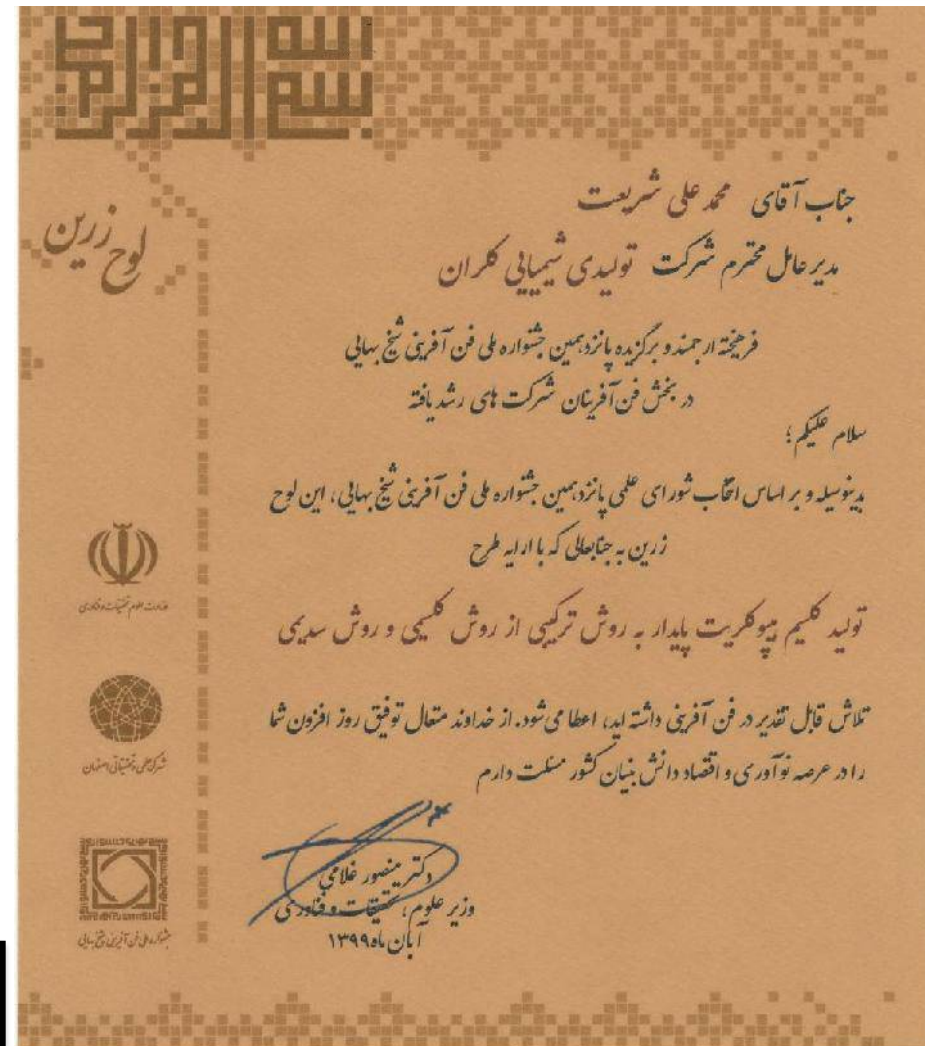 بسم الله الرحمن الرحیم
لوح زرین
جناب آقای محمد علی شریعت
مدیر عامل محترم شرکت تولیدی شیمیایی کلران
فرهیخته ارجمند و برگزیده پانزدهمین جشنواره ملی فن آفرینی شیخ بهایی
در بخش فن آفرینان شرکت های رشد یافته
سلام علیکم؛
بدینوسیله و بر اساس انتخاب شورای علمی پانزدهمین جشنواره ملی فن آفرینی شیخ بهایی، این لوح
زرین به جنابعالی که با ارایه طرح
تولید کلسیم هیپوکلریت پایدار به روش ترکیبی از روش کلسیمی و روش سدیمی
تلاش قابل تقدیر در فن آفرینی داشته اید، اعطا می شود. از خداوند متعال توفیق روز افزون شما
را در عرصه نوآوری و اقتصاد دانش بنیان کشور مسئلت دارم
دکتر منصور غلامی
وزیر علوم، تحقیقات و فناوری
آبان ماه ۱۳۹۹
وزارت علوم تحقیقات و فناوری
شهرک علمی و تحقیقاتی اصفهان
جشنواره ملی فن آفرینی شیخ بهایی